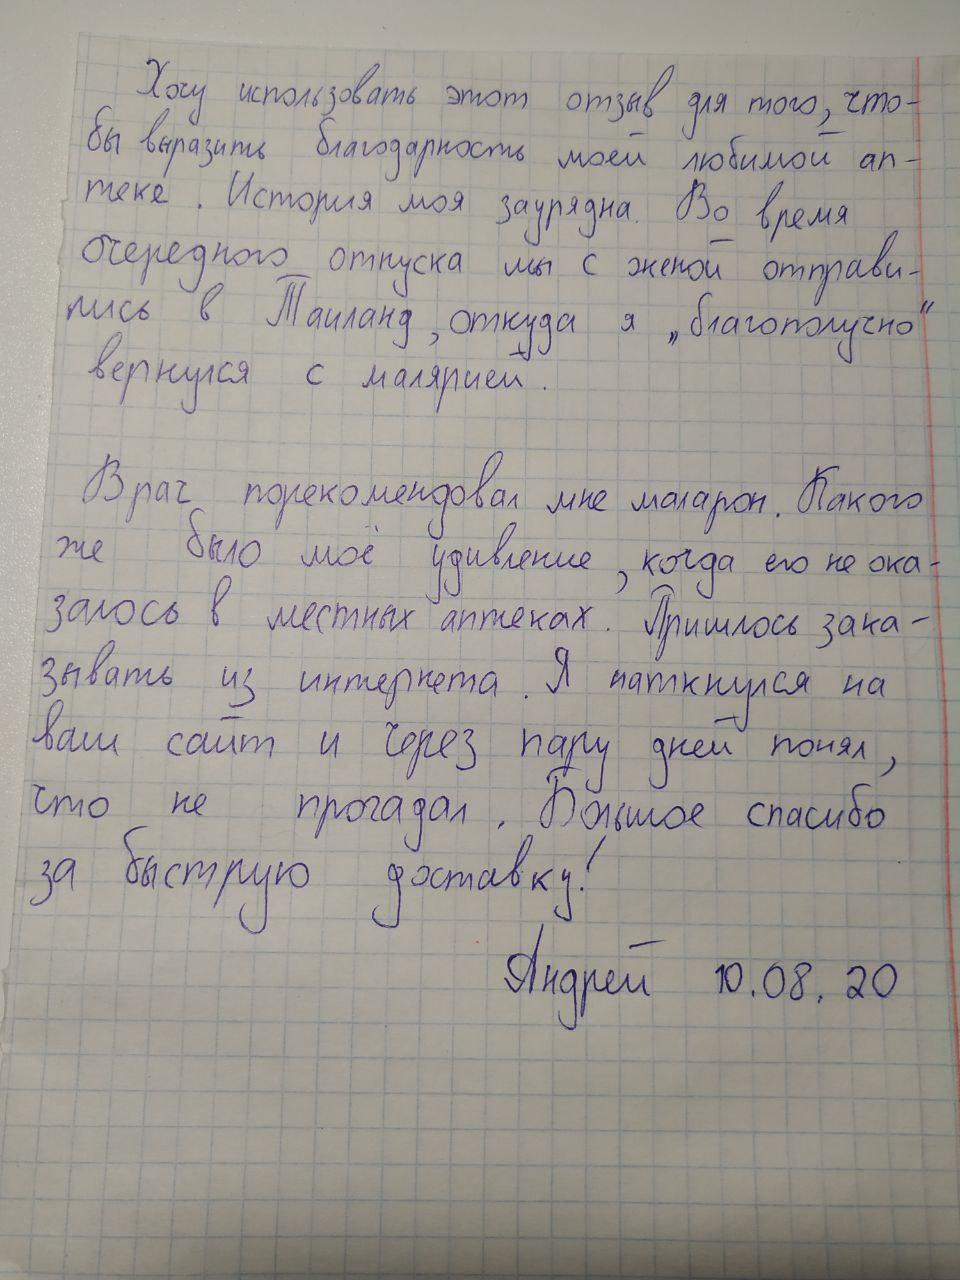 Хочу использовать этот отзыв для того, что-
бы выразить благодарность моей любимой ап-
теке. История моя заурядна. Во время
очередного отпуска мы с женой отправи-
лись в Таиланд, откуда я „благополучно“
вернулся с малярией.
Врач порекомендовал мне маларон. Какого
же было моё удивление, когда его не ока-
залось в местных аптеках. Пришлось зака-
зывать из интернета. Я наткнулся на
ваш сайт и через пару дней понял,
что не прогадал. Большое спасибо
за быструю доставку!
Андрей 10.08.20